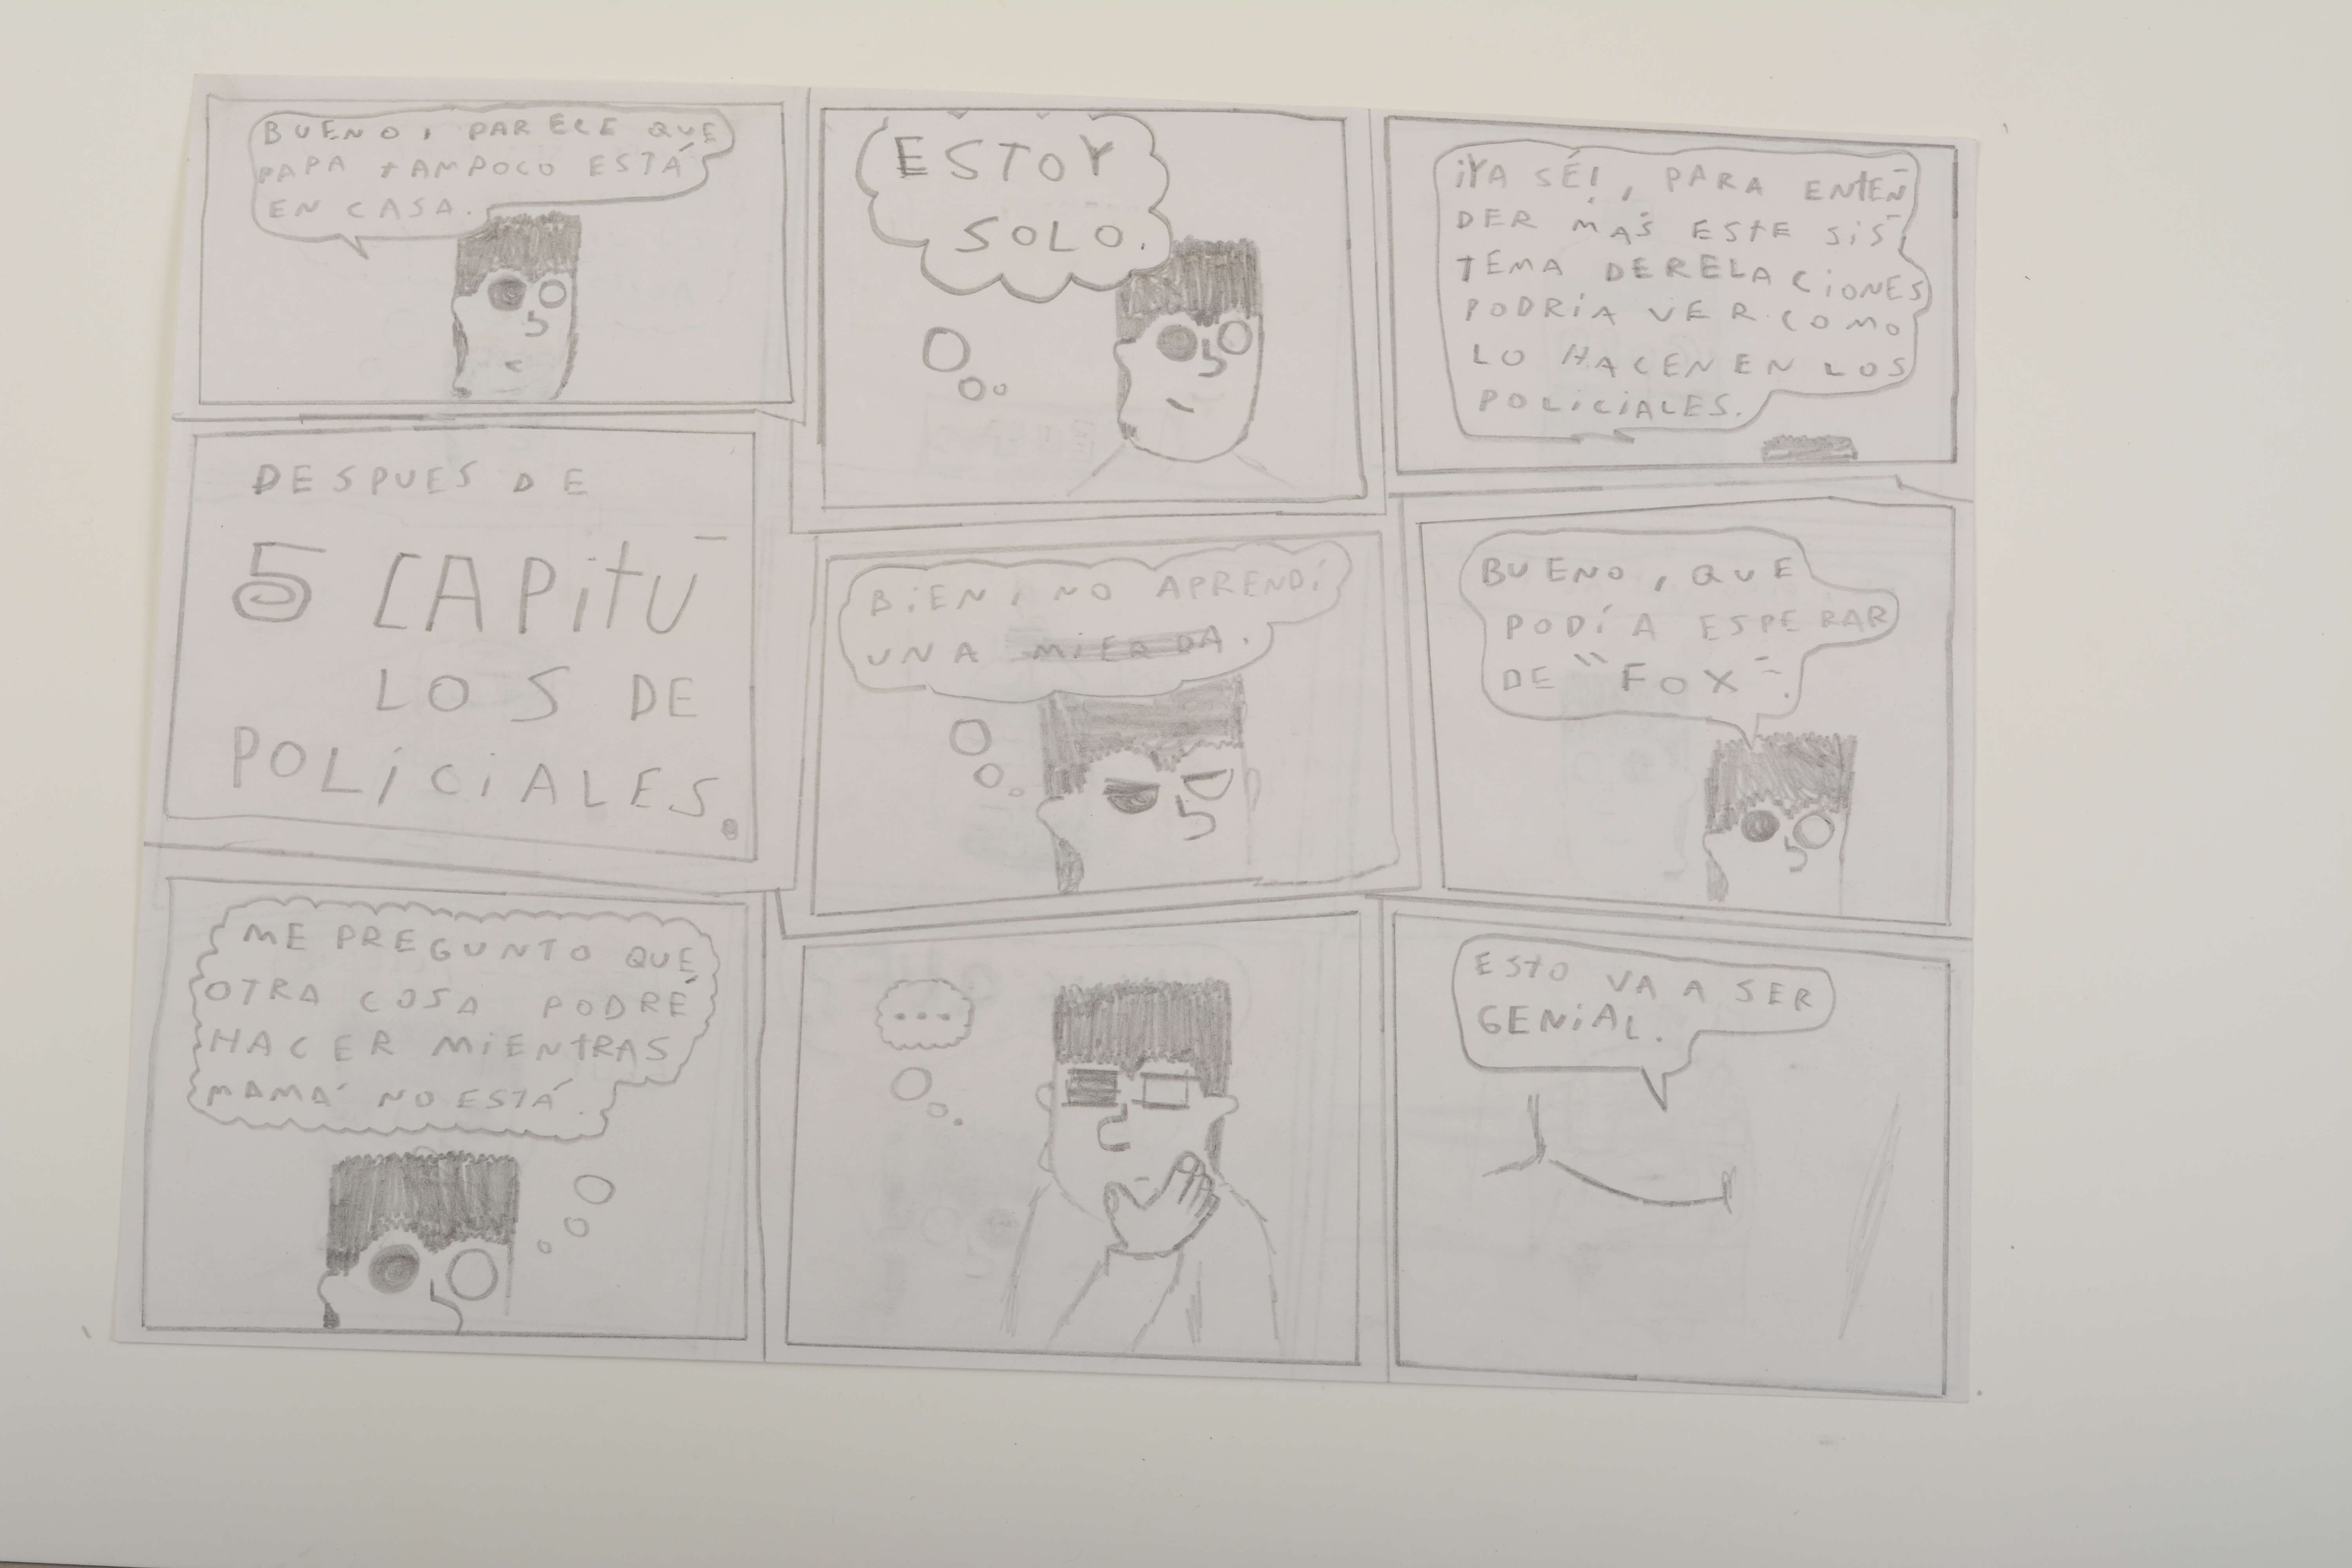 BUENO, PARECE QUE
PAPA TAMPOCO ESTÁ
EN CASA.
ESTOY
SOLO.
¡YA SÉ!, PARA ENTEN-
DER MÁS ESTE SIS-
TEMA DERELACIONES
PODRÍA VER COMO
LO HACEN EN LOS
POLICIALES.
DESPUES DE
5 CAPITU-
LOS DE
POLICIALES.
BIEN, NO APRENDÍ
UNA MIERDA.
BUENO, QUE
PODÍA ESPERAR
DE "FOX".
ME PREGUNTO QUE
OTRA COSA PODRÉ
HACER MIENTRAS
MAMÁ NO ESTÁ.
...
ESTO VA A SER
GENIAL.